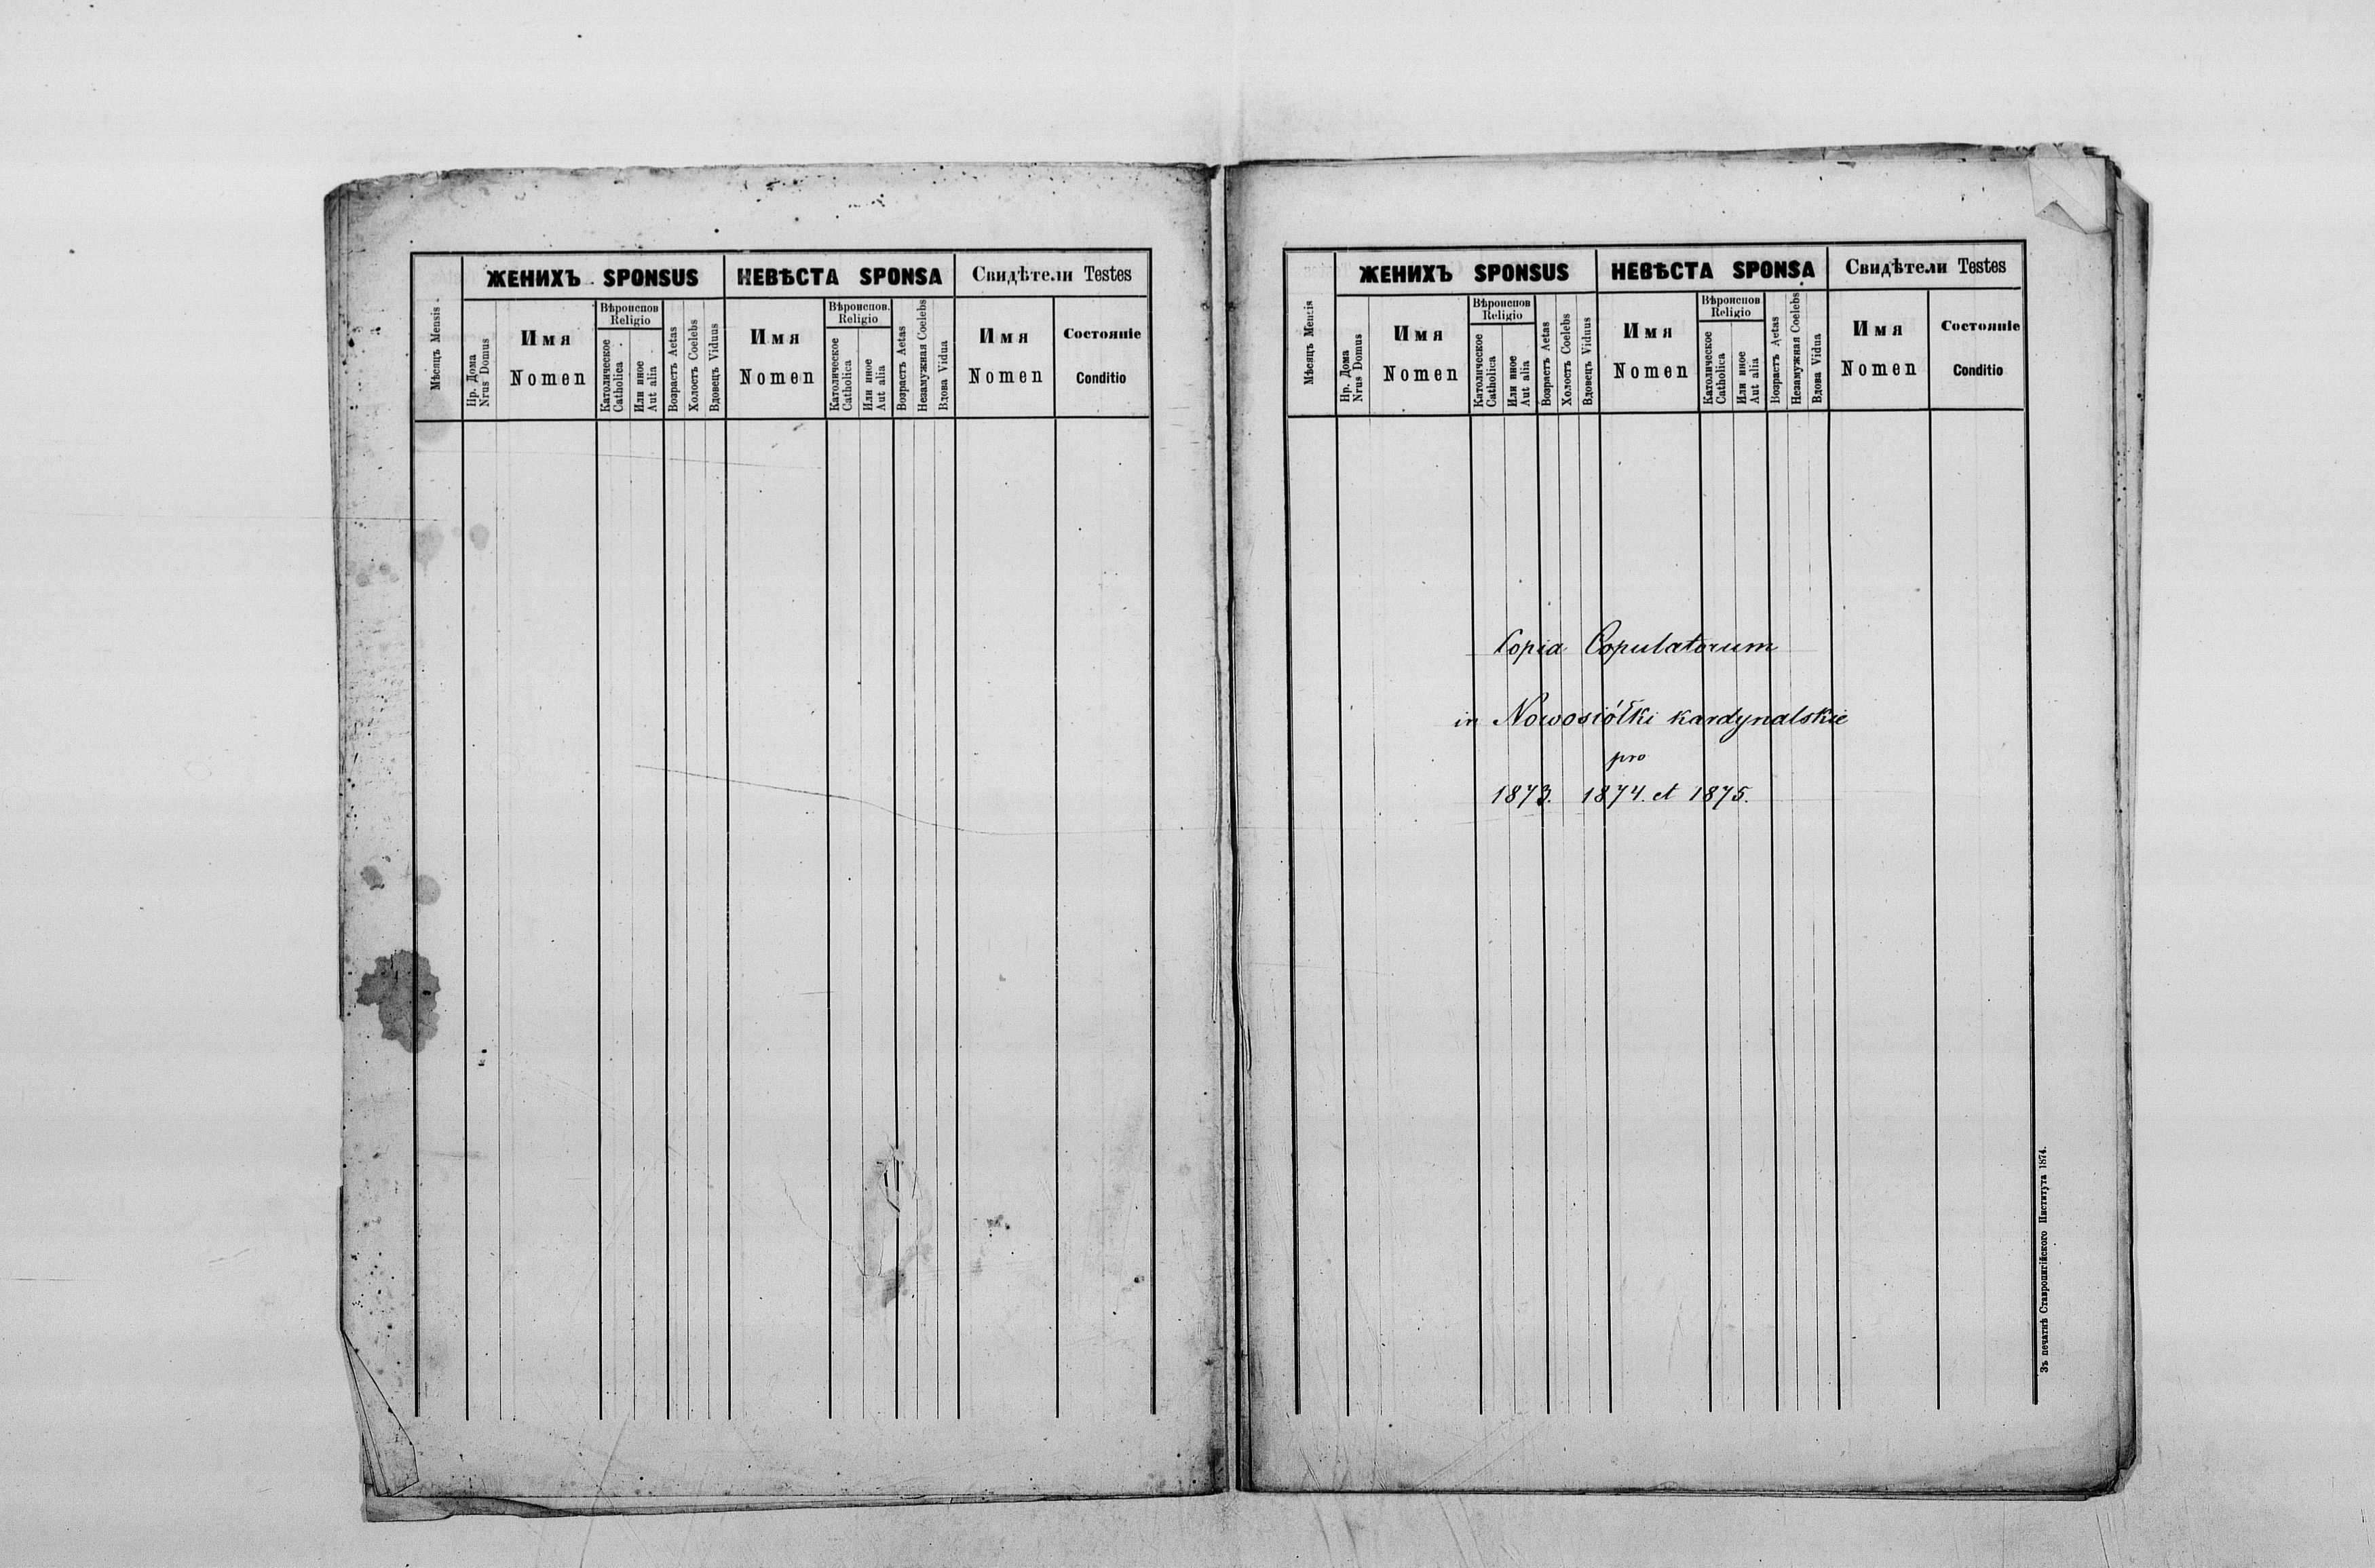 ЖЕНИХЪ SPONSUS
НЕВѢСТА SPONSA
Свидѣтели Testes
Мѣсяцъ Mensis
Нр. Дома
Nrus Domus
Имя
Nomen
Вѣроиспов
Religio
Католическое
Catholica
Или иное
Aut alia
Возрастъ Aetas
Холостъ Coelebs
Вдовецъ Viduus
Имя
Nomen
Вѣроиспов.
Religio
Католическое
Catholica
Или иное
Aut alia
Возрастъ Aetas
Незамужная Coelebs
Вдова Vidua
Имя
Nomen
Состояніе
Conditio
ЖЕНИХЪ SPONSUS
НЕВѢСТА SPONSA
Свидѣтели Testes
Мѣсяцъ Mensis
Нр. Дома
Nrus Domus
Имя
Nomen
Вѣроиспов
Religio
Католическое
Catholica
Или иное
Aut alia
Возрастъ Aetas
Холостъ Coelebs
Вдовецъ Viduus
Имя
Nomen
Вѣроиспов
Religio
Католическое
Catholica
Или иное
Aut alia
Возрастъ Aetas
Незамужная Coelebs
Вдова Vidua
Имя
Nomen
Состояніе
Conditio
Copia Copulatorum
in Nowosiółki kardynalskie
pro
1873. 1874. et 1875.
Зъ печатнѣ Ставропигійского Института 1874.